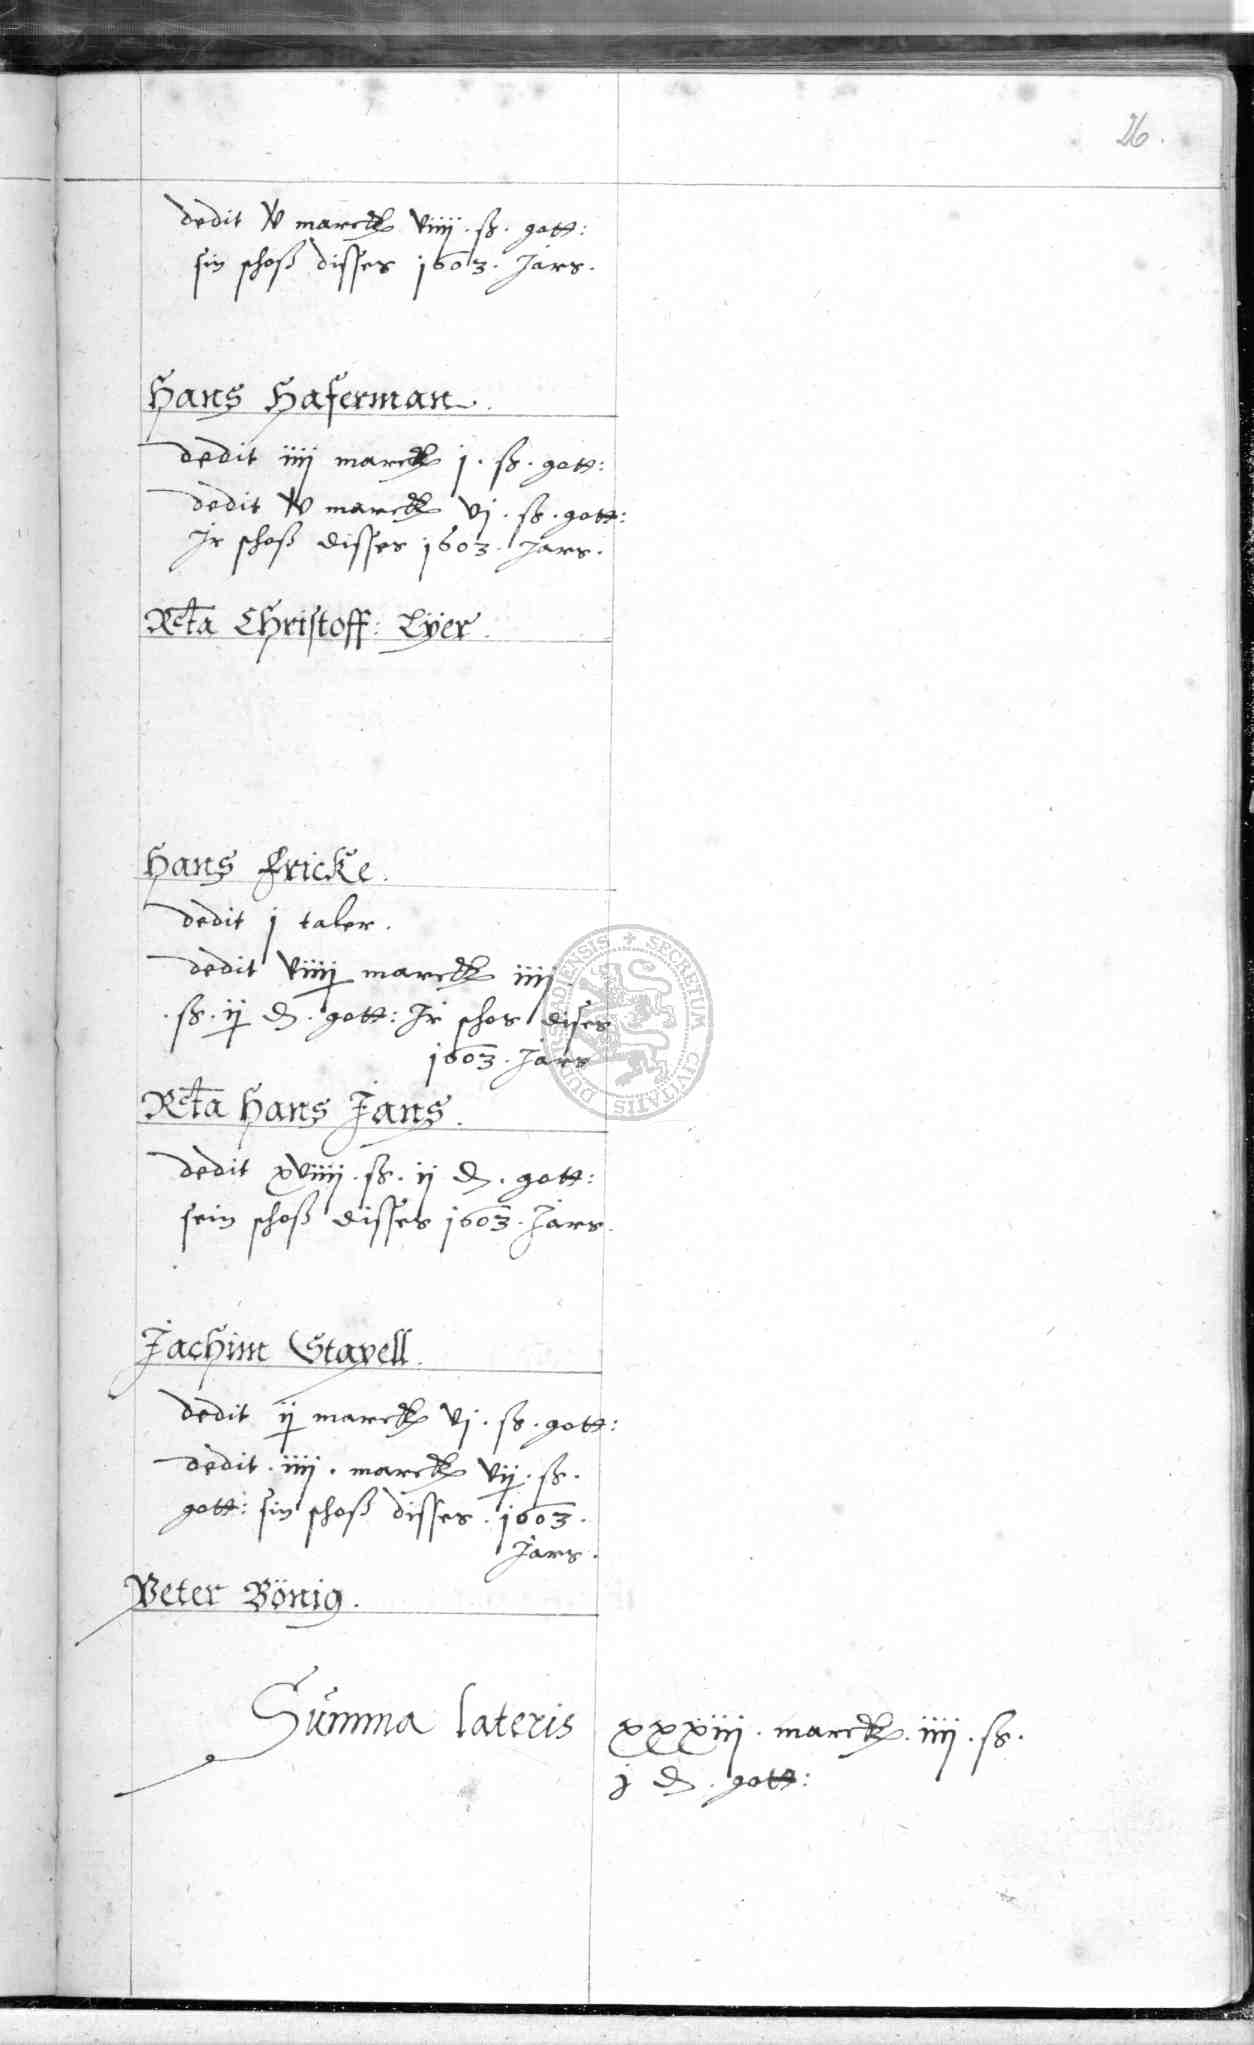 26.
dedit v marck viiij. ß. gott:
sin schoß disses 1603. Jars.
Hans Haferman.
dedit iiij marck j. ß. gott:
dedit v marck vj. ß. gott:
Jr schoß disses 1603. Jars.
Rcta Christoff: Lÿer.
Hans Fricke.
dedit j taler.
dedit viiij marck iiij.
.ß. ij ₰. gott: Jr schos dises
1603. Jars
Rcta Hans Jans.
dedit xviiij. ß. ij ₰. gott:
sein schoß disses 1603. Jars.
Jachim Stapell.
dedit ij marck vj. ß. gott:
dedit. iiij. marck vij. ß.
gott: sin schoß disses. 1603.
Jars.
Peter Bönig.
Summa lateris xxxiij. marck. iiij. ß.
j ₰. gott:
SECRETUM CIVITATIS DUDERSTADIENSIS